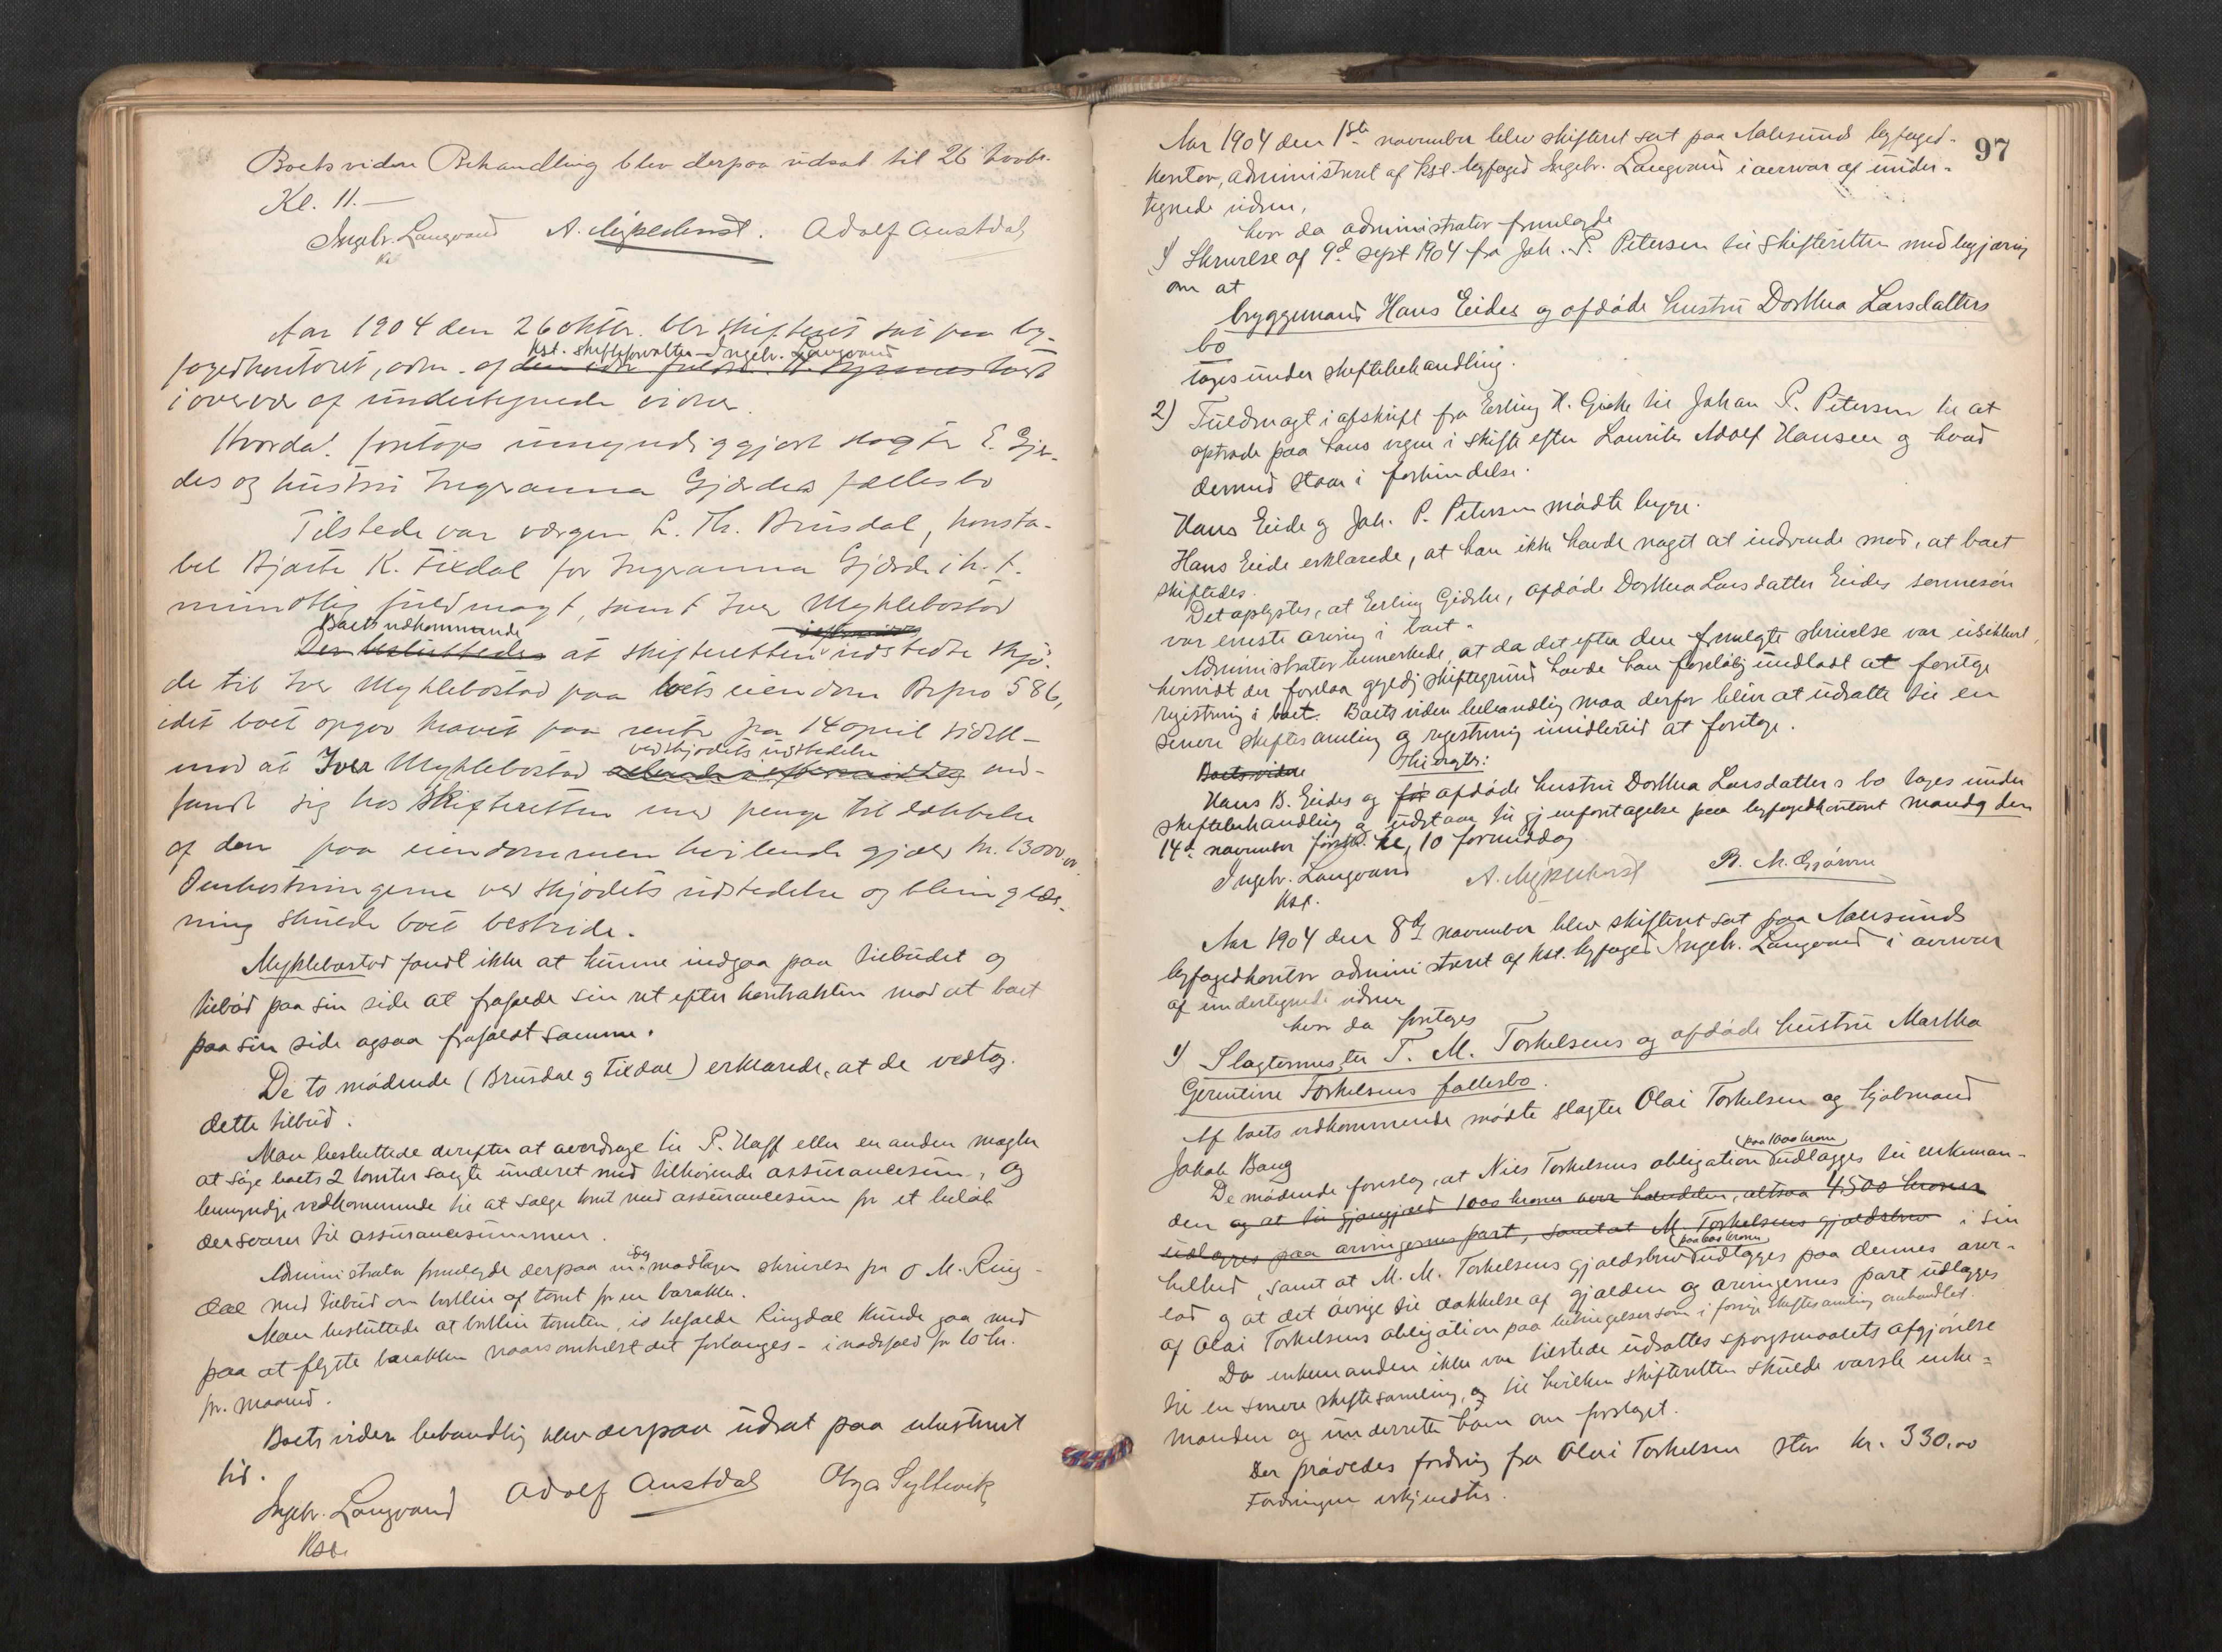 Boets videre Behandling blev derpaa udsat til 26 
Kl. 11.—
Ingebr. Langvand A. Adolf Austdal
Kst
Aar 1904 den 26 oktbr. blev skifteret sat paa by-
fogedkontoret, adm. af kst. skifteforvalter Ingebr. Langvand
i overvær af undertegnede vidner.
Hvorda! foretoges umyndiggjort slagter E. Gjær-
des og hustru Ingeranna Gjærdes fællesbo
Tilstede var værgen L. Th. Brusdal, konsta-
bel Bjarte K. Fixdal for Ingeranna Gjærde i h. t.
mundtlig fuldmagt, samt Iver Myklebostad
Boets vedkommende
at skifteretten udstedte skjø-
de til Iver Myklebostad paa boets eiendom Brpno 586,
idet boet opgov kravet paa rente fra 14 april sidstl-
mod at Iver Myklebostad ved skjødets udstedelse ind-
fandt sig hos skifteretten med penge til dækkelse
af den paa eiendommen hvilende gjæld kr. 13000,00
Omkostningerne ved skjødets udstedelse og thinglæs-
ning skulde boet bestride.
Myklebostad fandt ikke at kunne indgaa paa tilbudet og
tilbød paa sin side at frafalde sin ret efter kontrakten mod at boet
paa sin side ogsaa frafaldt samme.
De to mødende (Brusdal og Fixdal) erklærede, at de vedtog
dette tilbud.
Man besluttede derefter at overdrage til P. Haff eller en anden mægler
at søge boets 2 tomter solgte underet med tilhørende assurancesum, og
bemyndige vedkommende til at sælge tomt med assurancesum for et beløb
der svarer til assurancesummen.
Administrator fremlagde derpaa en idag modtagen skrivelse fra O M. Ring-
dal med tilbud om bortleie af tomt for en barakke.
Man besluttede at bortleie tomten, isåfald Ringdal kunde gaa med
paa at flytte barakken naarsomhelst det forlanges - i nødsfald for 10 kr.
pr. maaned.
Boets videre behandling blev derpaa udsat paa ubestemt
tid.
Ingebr. Langvand Adolf Austdal Olga Syltevik
Kst.
97
Aar 1904 den 1ste november blev skifteret sat paa Aalesunds byfoged-
kontor, administreret af kst. byfoged Ingebr. Langvand i overvær af under-
tegnede vidner,
hvor da administrator fremlagde
1) Skrivelse af 9d sept 1904 fra Joh. P. Petersen til skifteretten med begjæring
om at
bryggemand Hans Eides og afdøde hustru Dorthea Larsdatters
bo
toges under skiftebehandling.
2) Fuldmagt i afskrift fra Erling H. Giske til Johan P. Petersen til at
optræde paa hans vegne i skifte efter Laurits Adolf Hansen og hvad
dermed staar i forbindelse.
Hans Eide og Joh. P. Petersen mødte begge.
Hans Eide erklærede, at han ikke havde noget at indvende mod, at boet
skiftedes.
Det oplystes, at Erling Giske, afdøde Dorthea Larsdatter Eides sønnesøn
var eneste arving i boet.
Administrator bemerkede, at da det efter den fremlagte skrivelse var usikkert,
hvorvidt der forelaa gyldig skiftegrund havde han foreløbig undladt at foretage
registrering i boet. Boets videre behandling maa derfor blive at udsætte til en
senere skiftesamling og registrering imidlertid at foretage.
Boets videre Thi eragtes:
Hans B. Eides og før afdøde hustru Dorthea Larsdatters bo tages under
skiftebehandling og udstaar til gjenforetagelse paa byfogedkontoret mandag den
14de november førstk. kl. 10 formiddag
Ingebr. Langvand A. B. M. Gjørven
Kst.
Aar 1904 den 8de november blev skifteret sat paa Aalesunds
byfogedkontor administreret af kst. byfoged Ingebr. Langvand i overvær
af undertegnede vidner
hvor da foretoges
1) Slagtermester T. M. Torkelsens og afdøde hustru Martha
Gerentine Torkelsens fællesbo.
Af boets vedkommende mødte slagter Olai Torkelsen og kjøbmand
Jakob Bang
De mødende foreslog, at Nils Torkelsens obligation paa 1000 kroner udlægges til enkeman-
den og at til gjengjæld 1000 kroner over handelen, altsaa 4500 kroner
udlægges paa arvingernes part, samt at M. Torkelsens gjældsbrev i sin
helhed, samt at M. M. Torkelsens gjældsbrev paa 600 kroner udlægges paa dennes arve-
lod og at det øvrige til dækkelse af gjælden og arvingernes part udlægges
af Olai Torkelsens obligation paa betingelser som i forrige skiftesamling omhandlet.
Da enkemanden ikke var tilstede udsattes spørgsmaalets afgjørelse
til en senere skiftesamling, og til hvilken skifteretten skulde varsle enke-
manden og underrette ham om forslaget.
Der prøvedes fordring fra Olai Torkelsen stor kr. 330,00
Fordringen erkjendtes.